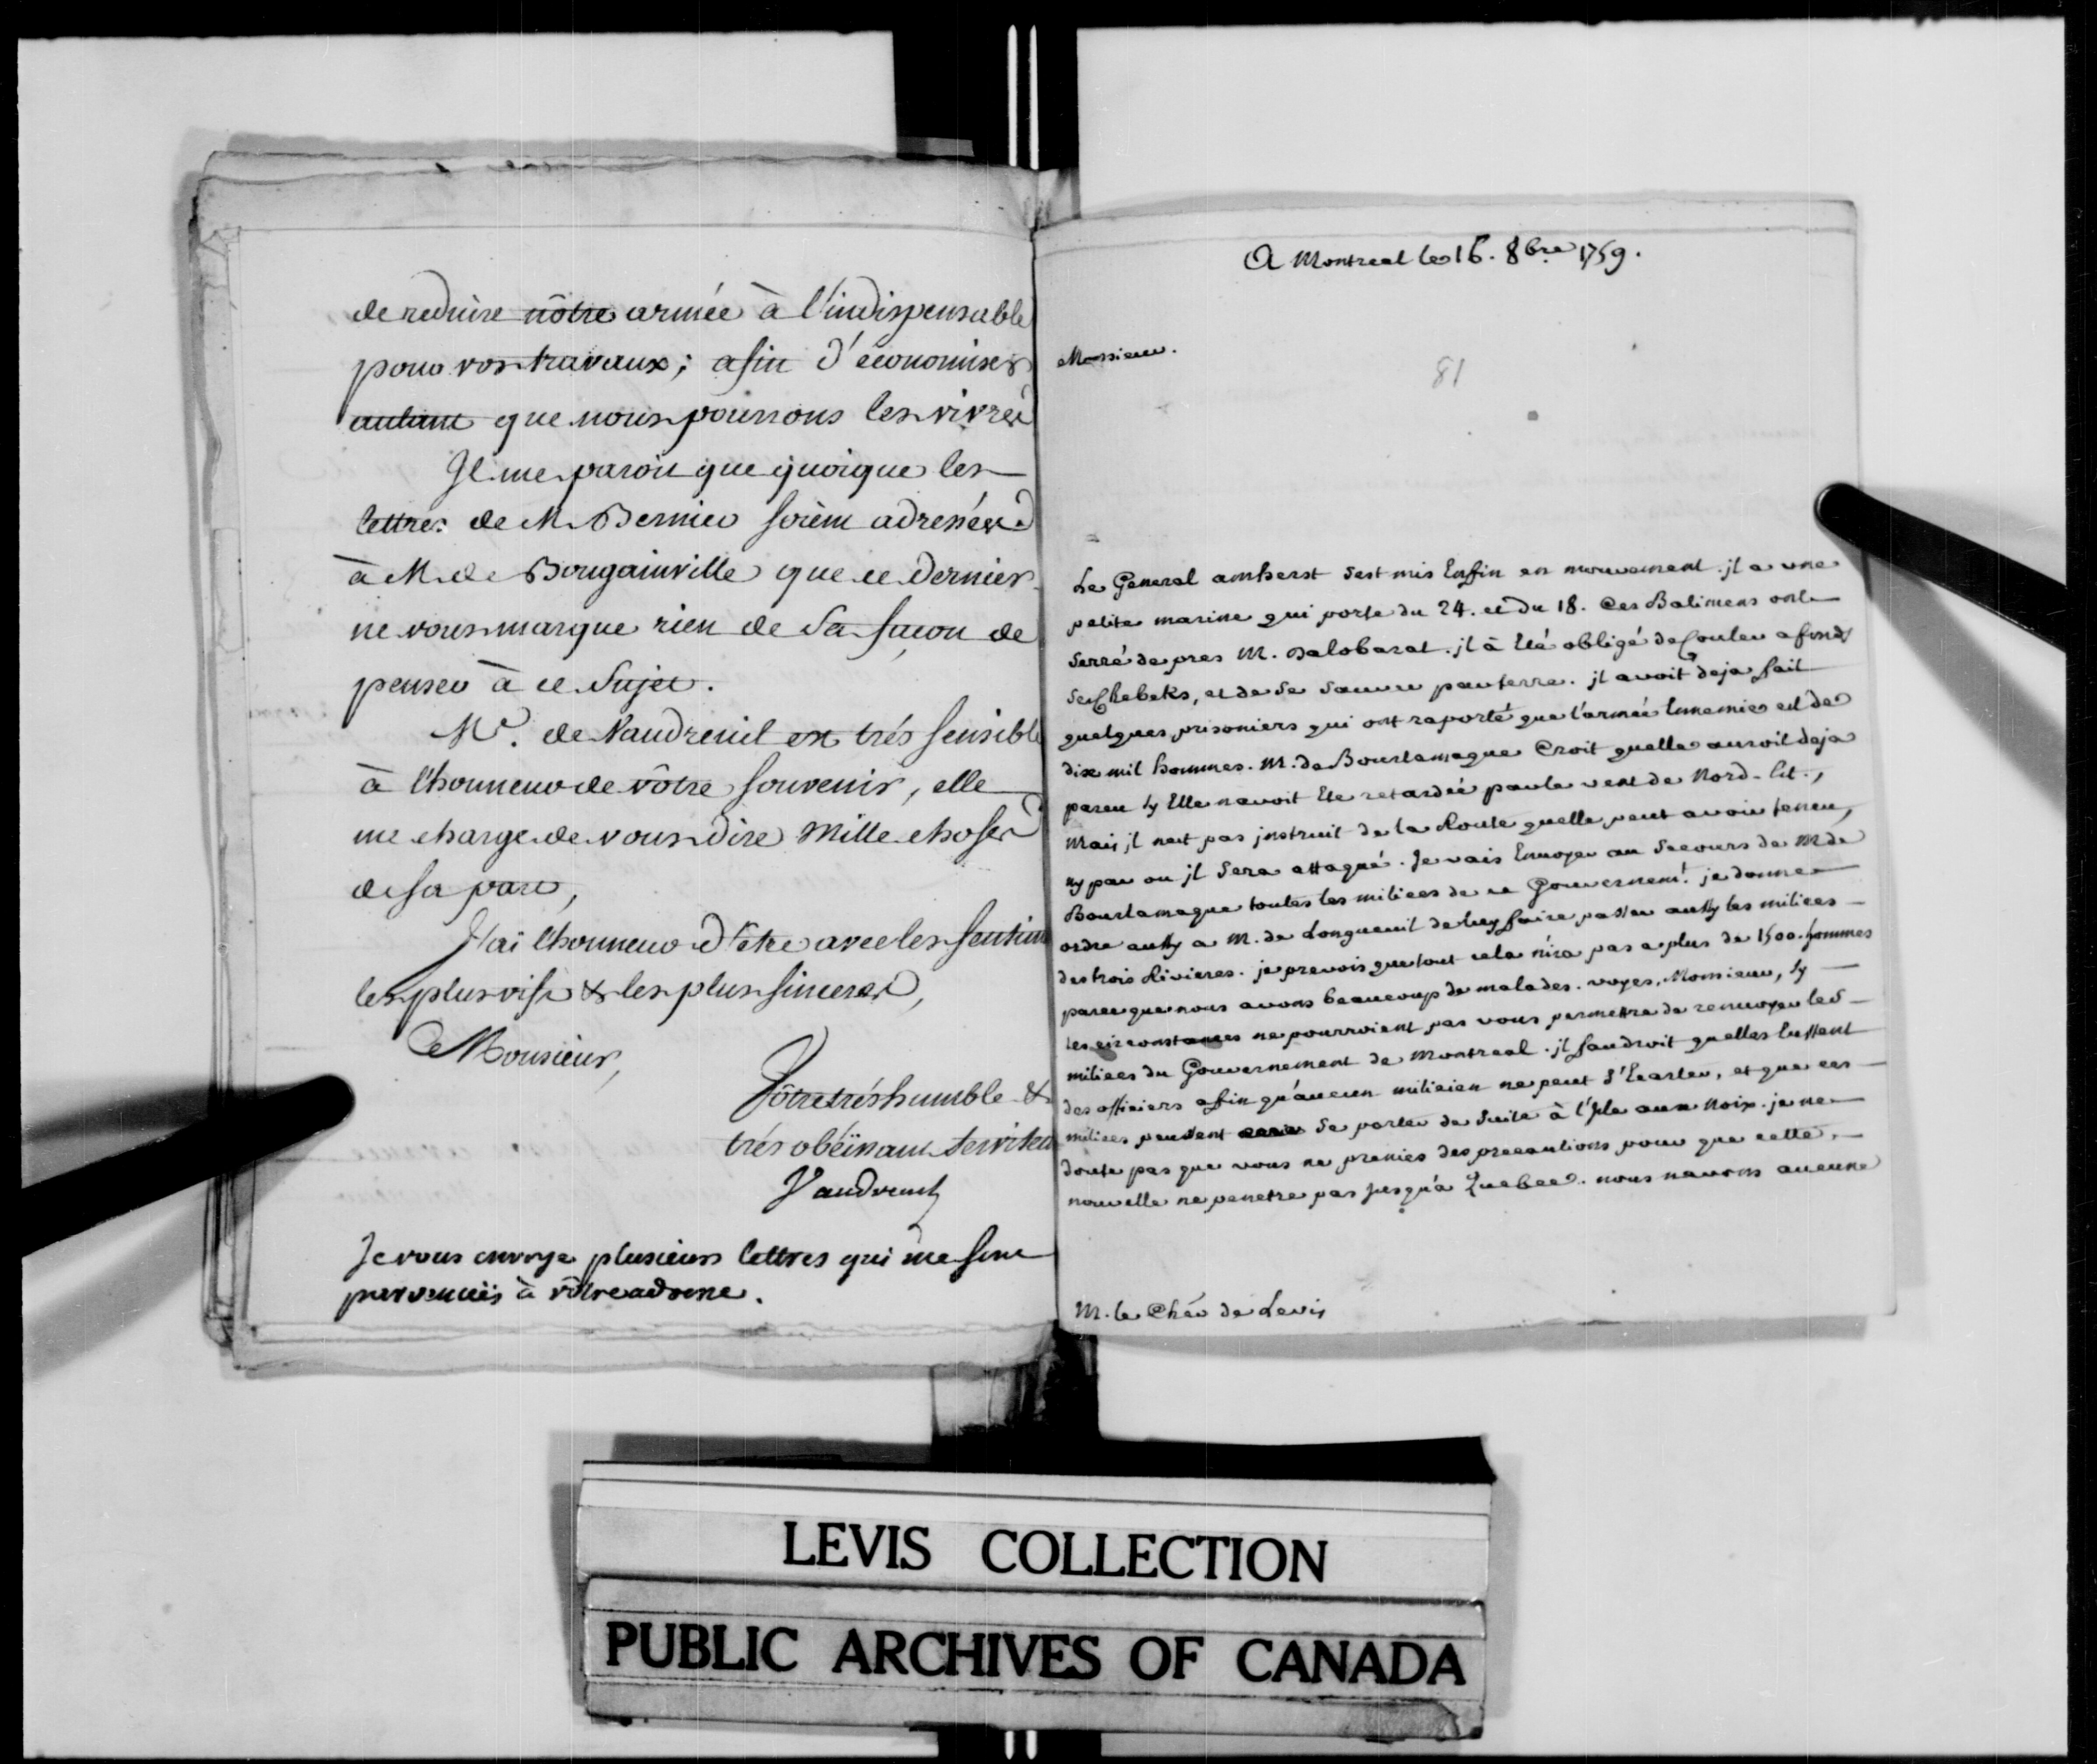 de reduire nôtre armée à l'indispensable
pour vos travaux; afin d'économiser
autant que nous pourrons les vivres
Il me paroit que quoique les
lettres de M. Bernier soient adressées
à M. de Bougainville que ce dernier
ne vous marque rien de sa façon de
penser à ce sujet.
Me. de Vaudreuil est trés sensible
à l'honneur de vôtre souvenir, elle
me charge de vous dire mille choses
de sa part,
J'ai l'honneur d'être avec les sentim
les plus vifs & les plus sinceres,
Monsieur,
Vôtre trés humble &
trés obéissant serviteu
Vaudreuil
Je vous envoye plusieurs lettres qui me sont
parvenuës à vôtre adresse.
A Montreal le 16. 8bre 1759.
Monsieur.
81
Le General amherst sest mis Enfin en mouvement. jl a une
petite marine qui porte du 24. et du 18. Ces Batimens ont
serré de pres M. Dalobarat. jl à Eté obligé de Couler a fonds
ses Chebeks, et de se sauver par terre. jl avoit deja fait
quelques prisoniers qui ont raporté que l'armée Ennemie est de
dix mil hommes. M. de Bourlamaque Croit quelle auroit deja
paru sy Elle navoit Ete retardée par le vent de Nord-Est,
Mais jl nest pas jnstruit de la Route quelle peut avoir teneu,
ny par ou jl sera attaqué. Je vais Envoyer au secours de M de
Bourlamaque toutes les milices de ce Gouvernemt. je donne
ordre aussy a M. de Longueuil de luy faire passer aussy les milices
des trois Rivieres. je prevois que tout cela nira pas a plus de 1500. hommes
parce que nous avons beaucoup de malades. voyes, Monsieur, sy
les circonstances ne pourroient pas vous permettre de renvoyer les
milices du Gouvernement de Montreal. jl faudroit quelles Eussent
des officiers afin qu'aucun milicien ne peut s'Ecarter, et que ces
milices peussent se porter de suite à l'jsle aux Noix. je ne
doute pas que vous ne prenies des precautions pour que cette
nouvelle ne penetre pas jusqu'a Quebec. nous navons aucune
M. le Cher de Levis
LEVIS COLLECTION
PUBLIC ARCHIVES OF CANADA